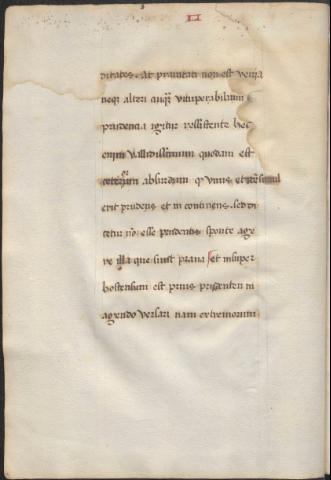 II
ditates. At prauitati non est venia
neqz alteri cuiqz vituperabilium
prudencia igitur resistente hec
enim vallidissimum quodam est
ceterum absurdum qz vnus et simul
erit prudens et incontinens. sed di
cetur no esse prudentis sponte age
re illa que sunt praua et insuper
hostensum est prius prudentem in
agendo versari nam extremorum